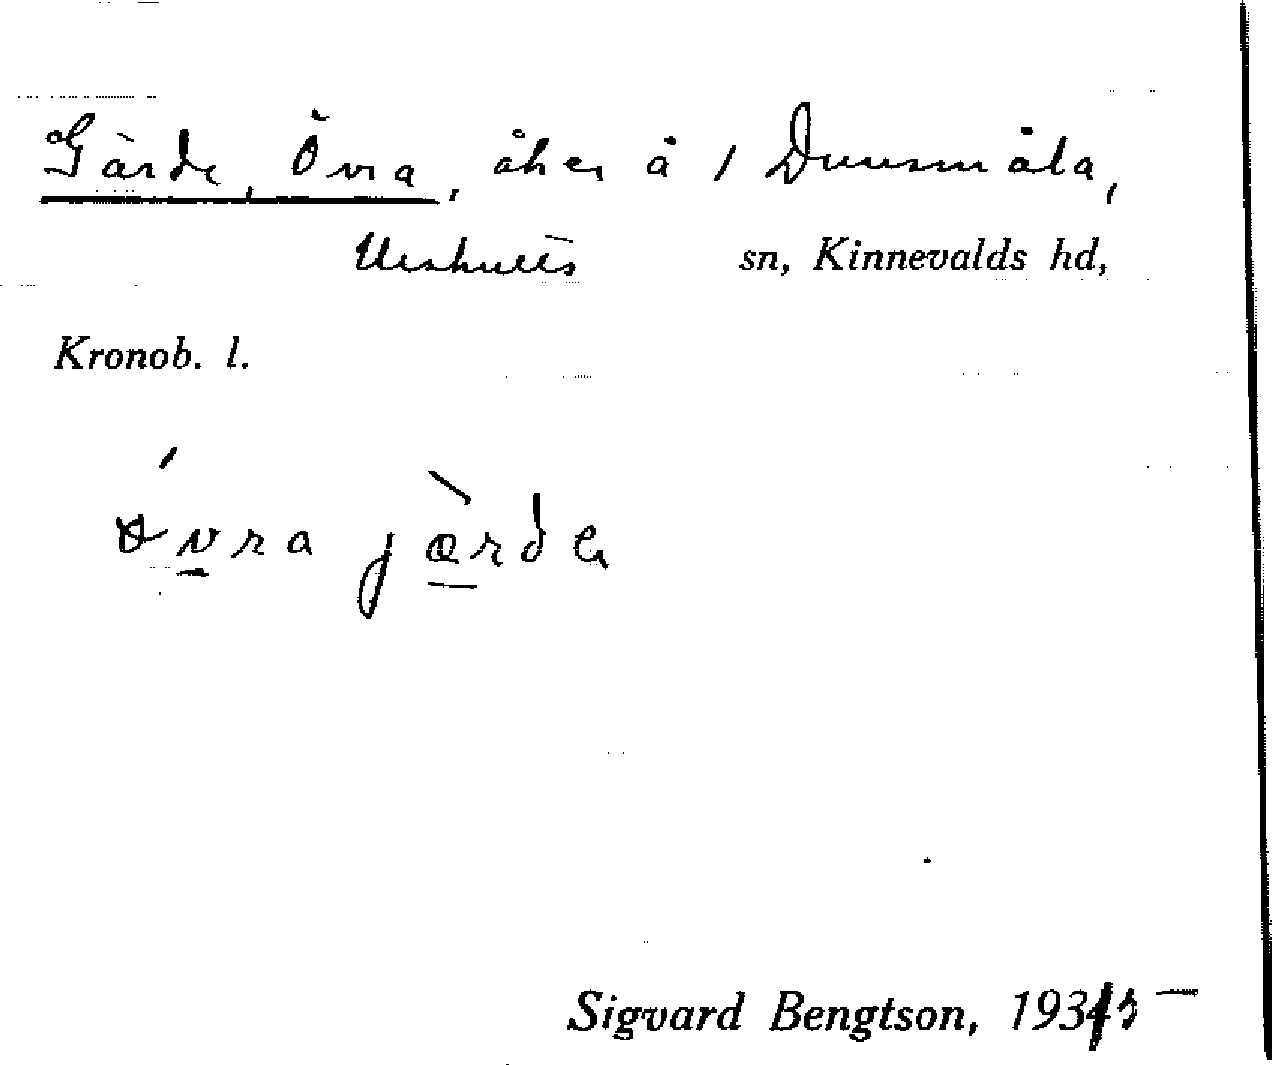 Gärde, Övra, åker å 1 Dunsmåla,
Urshults sn, Kinnevalds hd,
Kronob. l.
övra jærde
Sigvard Bengtson, 1935